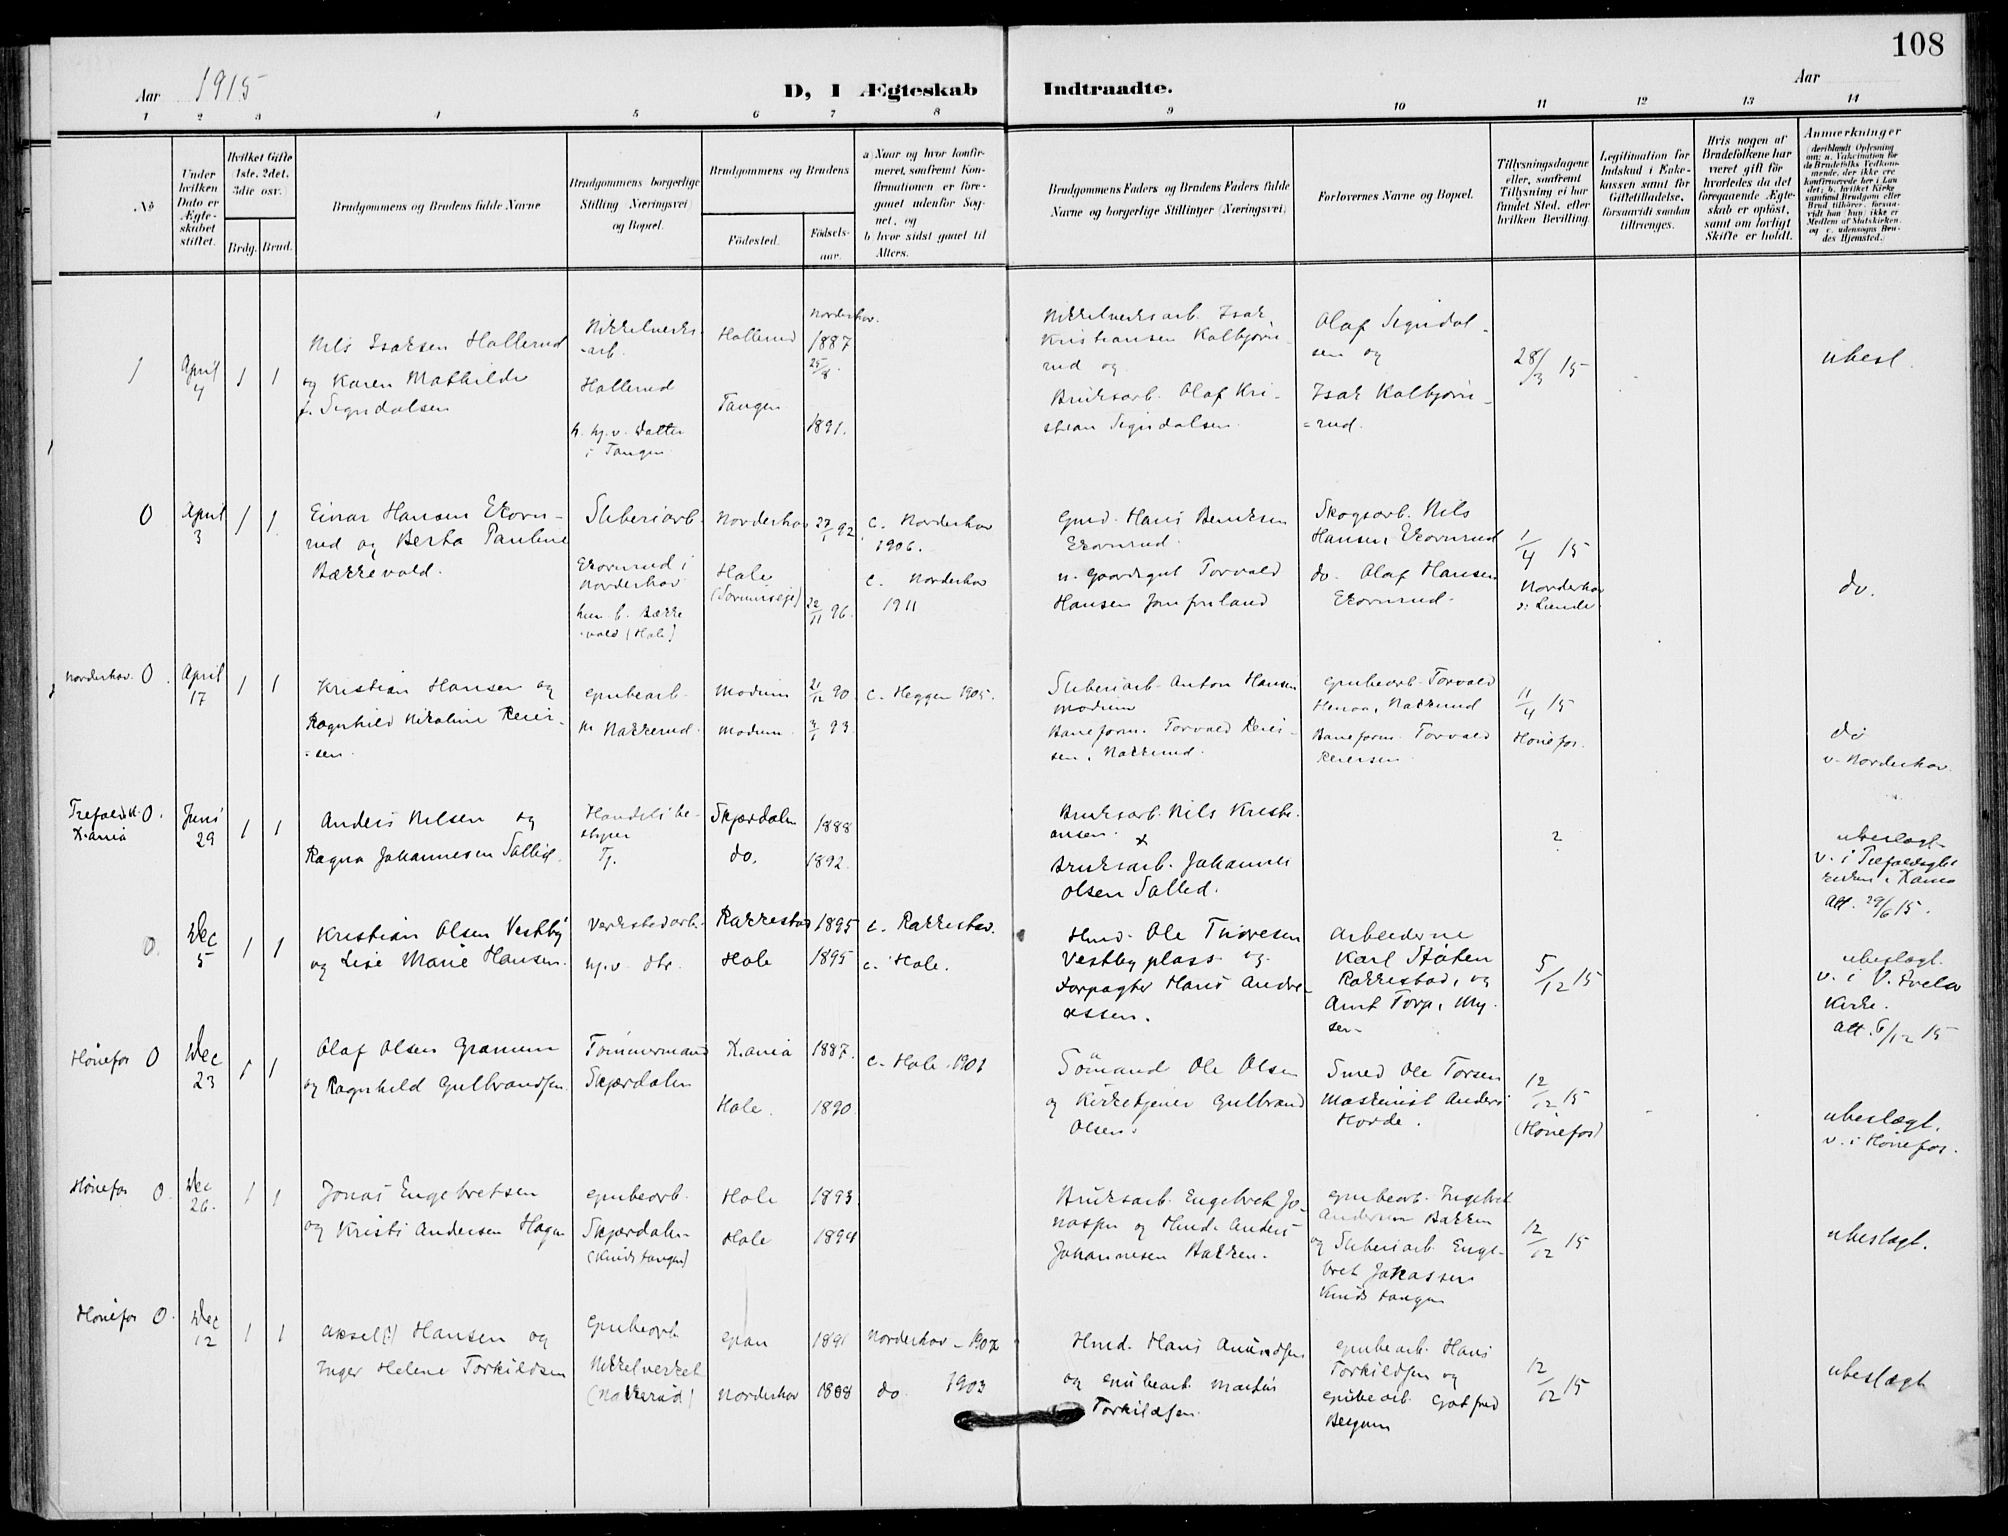 108
Aar 1915
D, I Ægteskab Indtraadte.
Aar
1 2 3 4 5 6 7 8 9 10 11 12 13 14
No
Under
hvilken
Dato er
Ægte-
skabet
stiftet.
Hvilket Gifte
1ste. 2det.
3die osv.
Brdg. Brud.
Brudgommens og Brudens fulde Navne
Brudgommens borgerlige
Stilling (Næringsvei)
og Bopæl.
Brudgommens og Brudens
Fødested.
Fødsels-
aar.
a) Naar og hvor konfir-
meret, saafremt Kon-
firmationen er fore-
gaaet udenfor Sog-
net, og
b) hvor sidst gaaet til
Alters.
Brudgommens Faders og Brudens Faders fulde
Navne og borgerlige Stillinger (Næringsvei)
Forlovernes Navne og Bopæl.
Tillysningsdagene
eller, saafremt
Tillysning ei har
fundet Sted, efter
hvilken Bevilling.
Legitimation for
Indskud i Enke-
kassen samt for
Giftetilladelse,
forsaavidt saadan
tiltrænges.
Hvis nogen af
Brudefolkene har
været gift før
hvorledes da det
foregaaende Ægte-
skab er opløst,
samt om lovligt
Skifte er holdt.
Anmerkninger
(deriblandt Oplysning
om: a. Vakcination for
de Brudefolks Vedkom-
mende, der ikke ere
konfirmerede her i Lan
det; b. hvilket Kirke
samfund Brudgom eller
Brud tilhører, forsaa-
vidt han (hun) ikke er
Medlem af Statskirken,
og c. udensogns Bru-
des Hjemsted.)
1
April
4
1 1
Nils Isaksen Hallerud
og Karen Mathilde
f. Signdalsen
Nikkelverks-
arb.
Hallerud
h. hj.v. Datter
i Tangen
Hallerud
Tangen
Norderhov.
1887
25/8
1891.
Nikkelverksarb. Isak
Kristiansen Kalbjørn
rud og
Bruksarb. Olaf Kri-
stian Signdalsen.
Olaf Signdal-
sen og
Isak Kalbjørn-
=rud.
28/3 15
ubesl.
0
April
3
1 1
Einar Hansen Ekorn-
rud og Berta Pauline
Bækkevold.
Sliberiarb.
Ekornrud i
Norderhov
hun b. Bække
vold (Hole)
Norderhov
Hole
27/1 92
22/11 96.
c. Norderhov
1906.
c. Norderhov
1911
Gmd. Hans
Ekornrud.
Torvald
Hansen
Skogsarb. Nils
Hansen Ekornrud
do. Olaf Hansen
Ekornrud.
1/4 15
Norderhov
do.
Norderhov. 0.
April
17
1 1
Kristian Hansen og
Ragnhild Nikoline Reier-
=sen.
grubearb.
Nakkerud.
Modum
Modum.
21/12 90
93
c. Heggen 1905.
Sliberiarb. Anton Hansen
Modum
Baneform. Torvald Reier-
sen, Nakkerud.
grubearb. Torvald
Nakkerud
Baneform. Torvald
Reiersen
11/4 15
Hønefos.
do
v. Norderhov
K.ania
0.
Juni
29
1 1
Anders Nilsen og
Ragna Johannesen Sollid.
Handelsbe-
styrer
Skjærdalen
do.
1888
1892.
Bruksarb. Nils Kristi-
ansen.
x
Bruksarb. Johannes
Olsen Sollid.
?
ubeslægt.
Att. 29/6 15.
0.
Dec
5
1 1
Kristian Olsen Vestby
og Lise Marie Hansen.
Verkstedarb.
hj.v. dtr.
Rakkestad
Hole
1895
1895
c. Rakkestad.
c. Hole.
Hmd. Ole Thoresen
Vestby plass og
Forpagter Hans Andre-
assen.
Arbeiderne
Karl Støten
Rakkestad, og
Arnt Torp, My-
sen.
5/12 15
ubeslægt.
v. i V.
Kirke.
Att. 6/12 15
Hønefos 0
Dec
23
1 1
Olaf Olsen Gramum
og Ragnhild Gulbrandsen.
Tømmermand
Skjærdalen
K.ania
Hole.
1887.
1890
c. Hole. 1901
Sømand Ole Olsen
og Kirketjener Gulbrand
Olsen.
Smed Ole Torsen
Maskinist Anders
Horde.
12/12 15
(Hønefos)
ubeslægt.
v. i Hønefos.
Hønefos 0.
Dec
26.
1 1
Jonas Engebretsen
og Kristi Andersen Hagen
grubearb.
Skjærdalen
Hole
Hole
1893
1894
Bruksarb. Engebret Jo-
nassen og Hmd. Anders
Johannesen Bakken.
grubearb. Ingebret
Andersen Bakken
og Sliberiarb. Enge-
bret Jonassen
12/12 15
ubeslægt.
Hønefos 0.
Dec
12
1 1
Aksel(?) Hansen og
Inger Helene Torkildsen
Grubearb.
Nikkelverket
(Nakkerud)
Gran
Norderhov
1891
1888
Norderhov - 1907
do. 1903
Hmd. Hans Amundsen
og grubearb. Martin
Torkildsen.
grubearb. Hans
Torkildsen og
grubearb. Gotfred
Bergum
12/12 15
ubeslægt